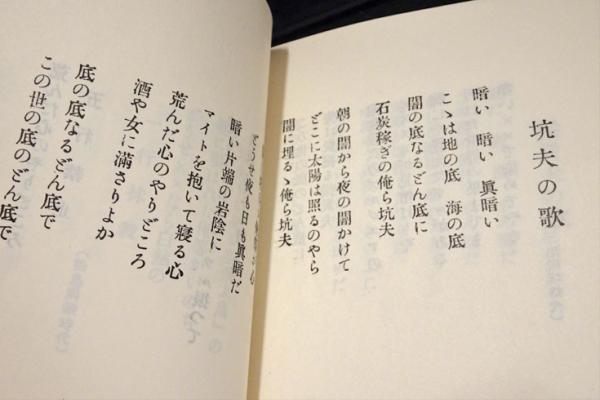 坑夫の歌
暗い　暗い　眞暗い
こゝは地の底　海の底
闇の底なるどん底に
石炭稼ぎの俺ら坑夫
朝の闇から夜の闇かけて
どこに太陽は照るのやら
闇に埋るゝ俺ら坑夫
どうせ夜も日も眞暗だ
暗い片端の岩陰に
マイトを抱いて寝る心
荒んだ心のやりどころ
酒や女に満さりよか
底の底なるどん底で
この世の底のどん底で